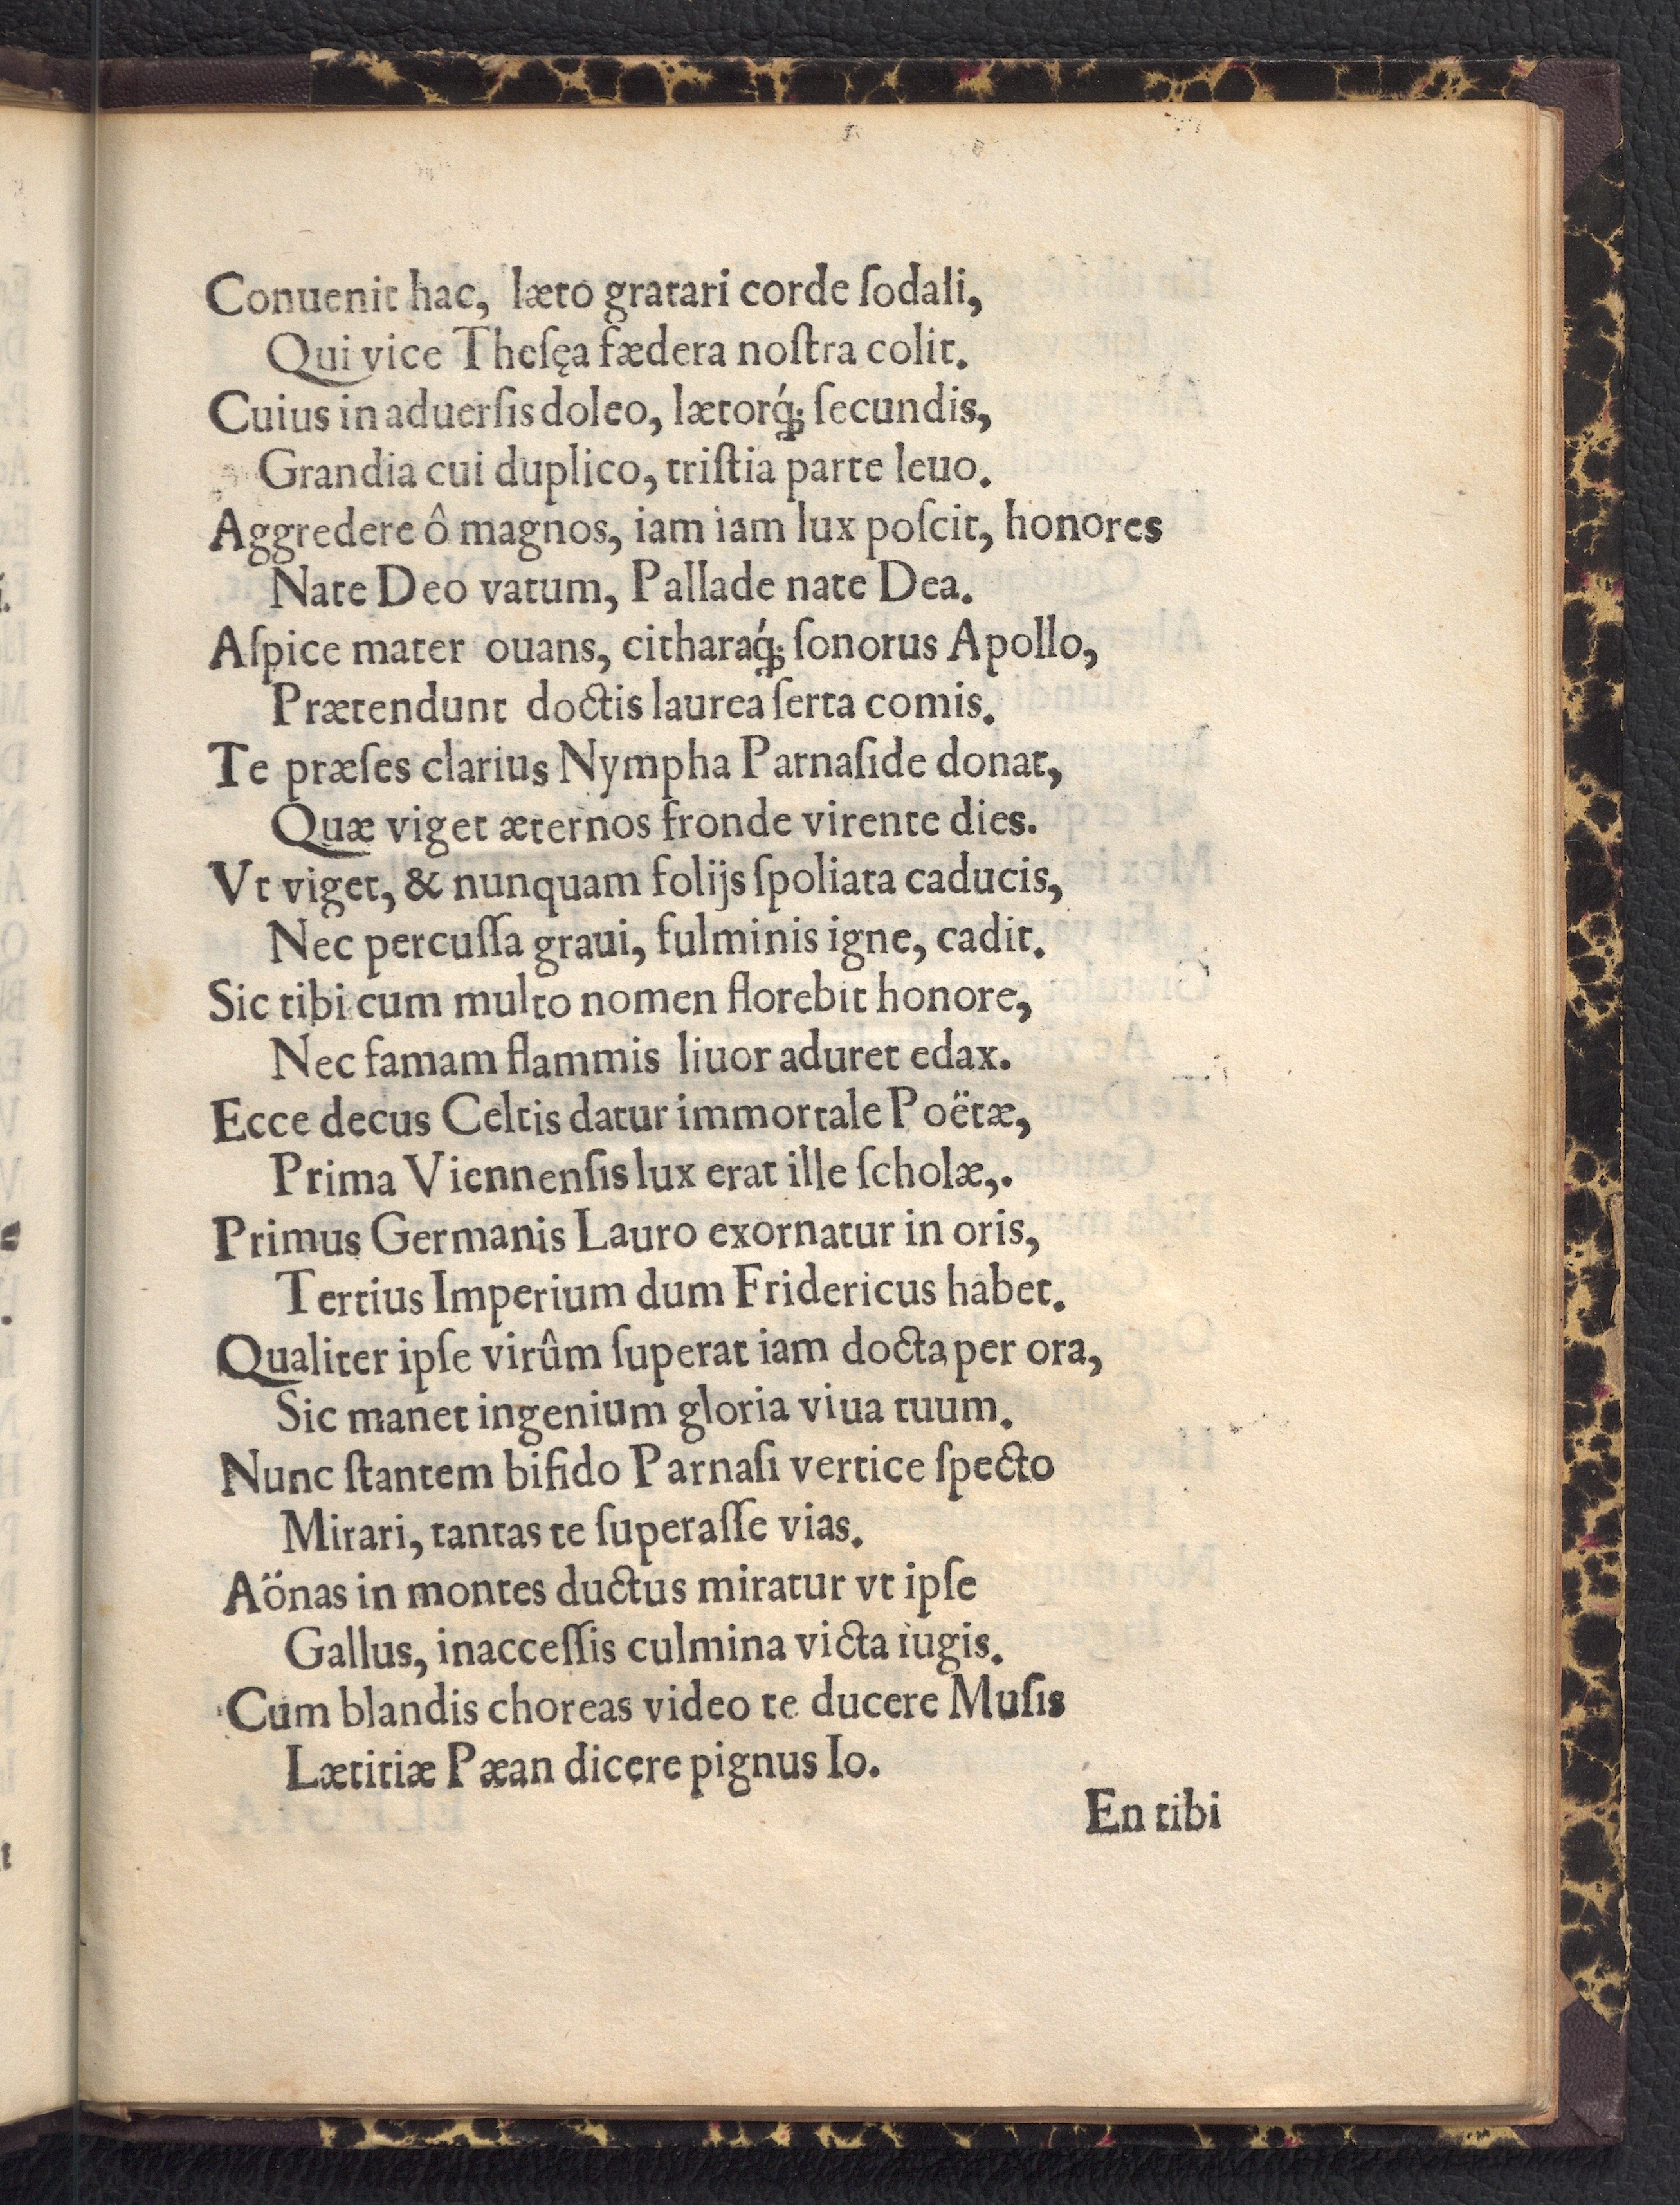 Conuenit hac, læto gratari corde ſodali,
Qui vice Theſęa fædera noſtra colit.
Cuius in aduerſis doleo, lætorq́; ſecundis,
Grandia cui duplico, triſtia parte leuo.
Aggredere ô magnos, iam iam lux poſcit, honores
Nate Deo vatum, Pallade nate Dea.
Aſpice mater ouans, citharaq́; ſonorus Apollo,
Prætendunt doctis laurea ſerta comis.
Te præſes clarius Nympha Parnaſide donat,
Quæ viget æternos fronde virente dies.
Vt viget, & nunquam folijs ſpoliata caducis,
Nec percuſſa graui, fulminis igne, cadit.
Sic tibi cum multo nomen florebit honore,
Nec famam flammis liuor aduret edax.
Ecce decus Celtis datur immortale Poëtæ,
Prima Viennenſis lux erat ille ſcholæ,.
Primus Germanis Lauro exornatur in oris,
Tertius Imperium dum Fridericus habet.
Qualiter ipſe virûm ſuperat iam docta per ora,
Sic manet ingenium gloria viua tuum.
Nunc ſtantem bifido Parnaſi vertice ſpecto
Mirari, tantas te ſuperaſſe vias.
Aönas in montes ductus miratur vt ipſe
Gallus, inacceſſis culmina victa iugis.
Cum blandis choreas video te ducere Muſis
Lætitiæ Pæan dicere pignus Io.
En tibi